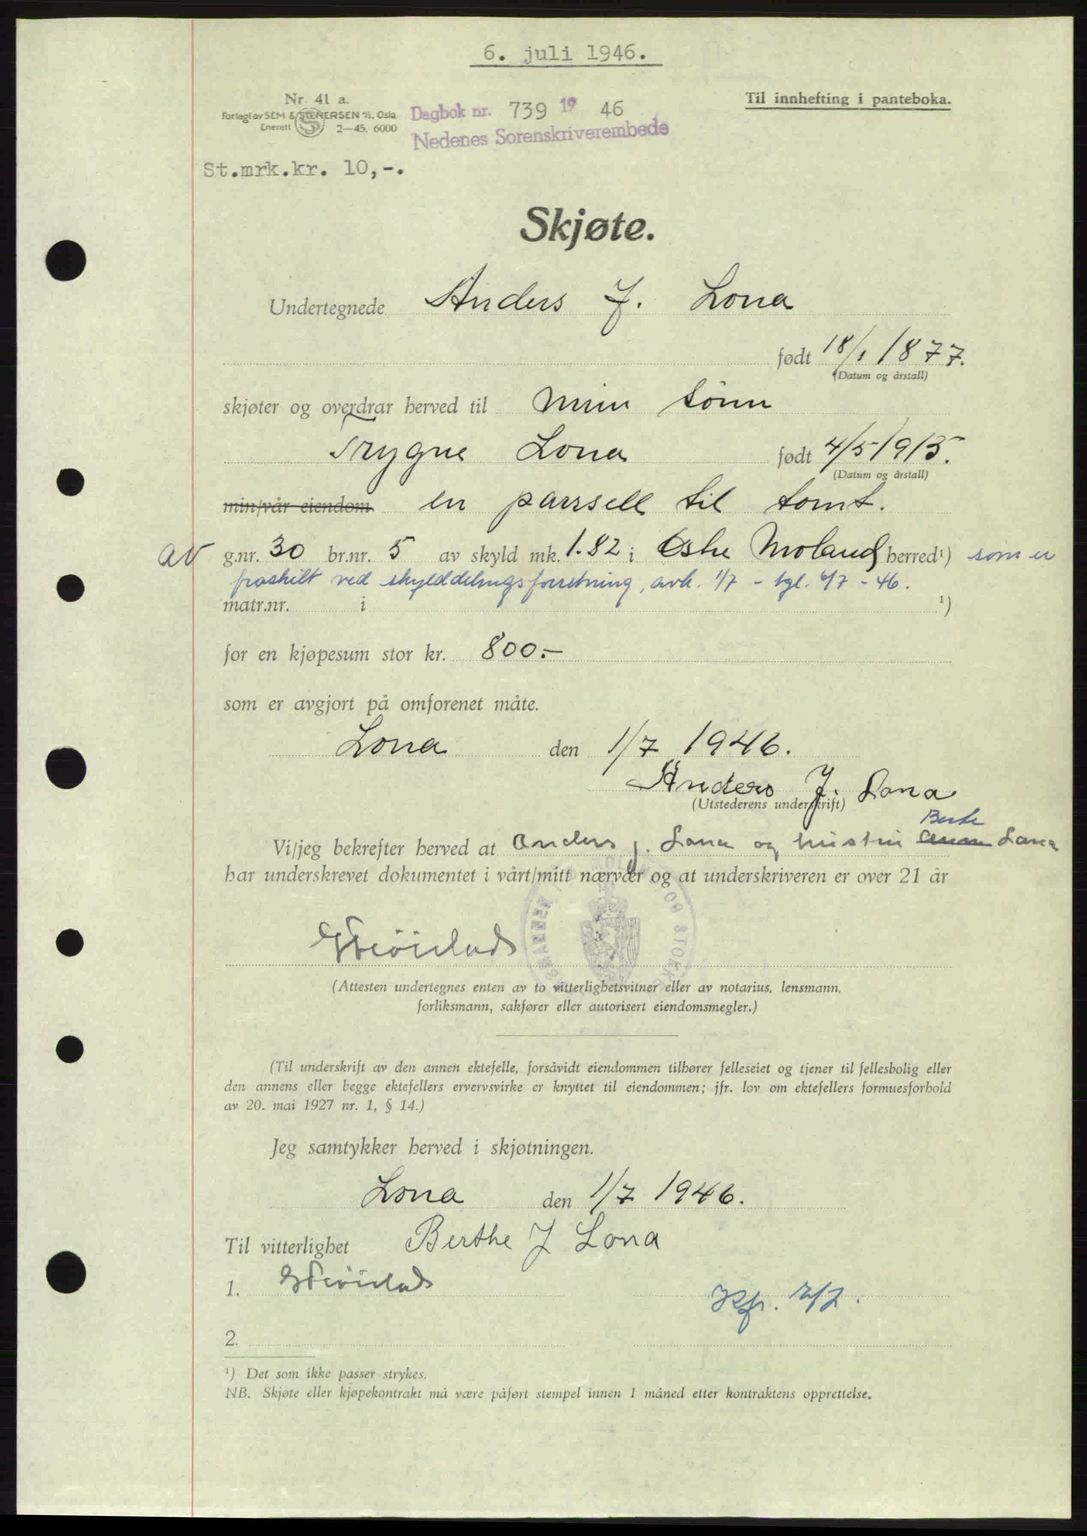 6. juli 1946.
Nr. 41 a.
Til innhefting i panteboka.
Forlagt av SEM & STENERSEN A/S, Oslo
Enerett 2—45. 6000
Dagbok nr. 739 19 46
Nedenes Sorenskriverembede
St.mrk.kr. 10,-.
Skjøte.
Undertegnede Anders J. Lona
født 18/1 1877.
(Datum og årstall)
skjøter og overdrar herved til min sønn
Trygve Lona født 4/5 1915.
(Datum og årstall)
min/vår eiendom en parsell til tomt.
av g.nr. 30 br.nr. 5 av skyld mk. 1.82 i Østre Moland herred¹) som er
fraskilt ved skylddelingsforretning, avh. 1/7 - tgl. 6/7 - 46.
matr.nr. i ¹)
for en kjøpesum stor kr. 800.-
som er avgjort på omforenet måte.
Lona den 1/7 1946.
Anders J. Lona
(Utstederens underskrift)
Berte
Vi/jeg bekrefter herved at Anders J. Lona og hustru Lona
har underskrevet dokumentet i vårt/mitt nærvær og at underskriveren er over 21 år
(Attesten undertegnes enten av to vitterlighetsvitner eller av notarius, lensmann,
forliksmann, sakfører eller autorisert eiendomsmegler.)
(Til underskrift av den annen ektefelle, forsåvidt eiendommen tilhører felleseiet og tjener til fellesbolig eller
den annens eller begge ektefellers ervervsvirke er knyttet til eiendommen; jfr. lov om ektefellers formuesforhold
av 20. mai 1927 nr. 1, § 14.)
Jeg samtykker herved i skjøtningen.
Lona den 1/7 1946.
Til vitterlighet Berthe J Lona
1.
2.
¹) Det som ikke passer strykes.
NB. Skjøte eller kjøpekontrakt må være påført stempel innen 1 måned etter kontraktens opprettelse.